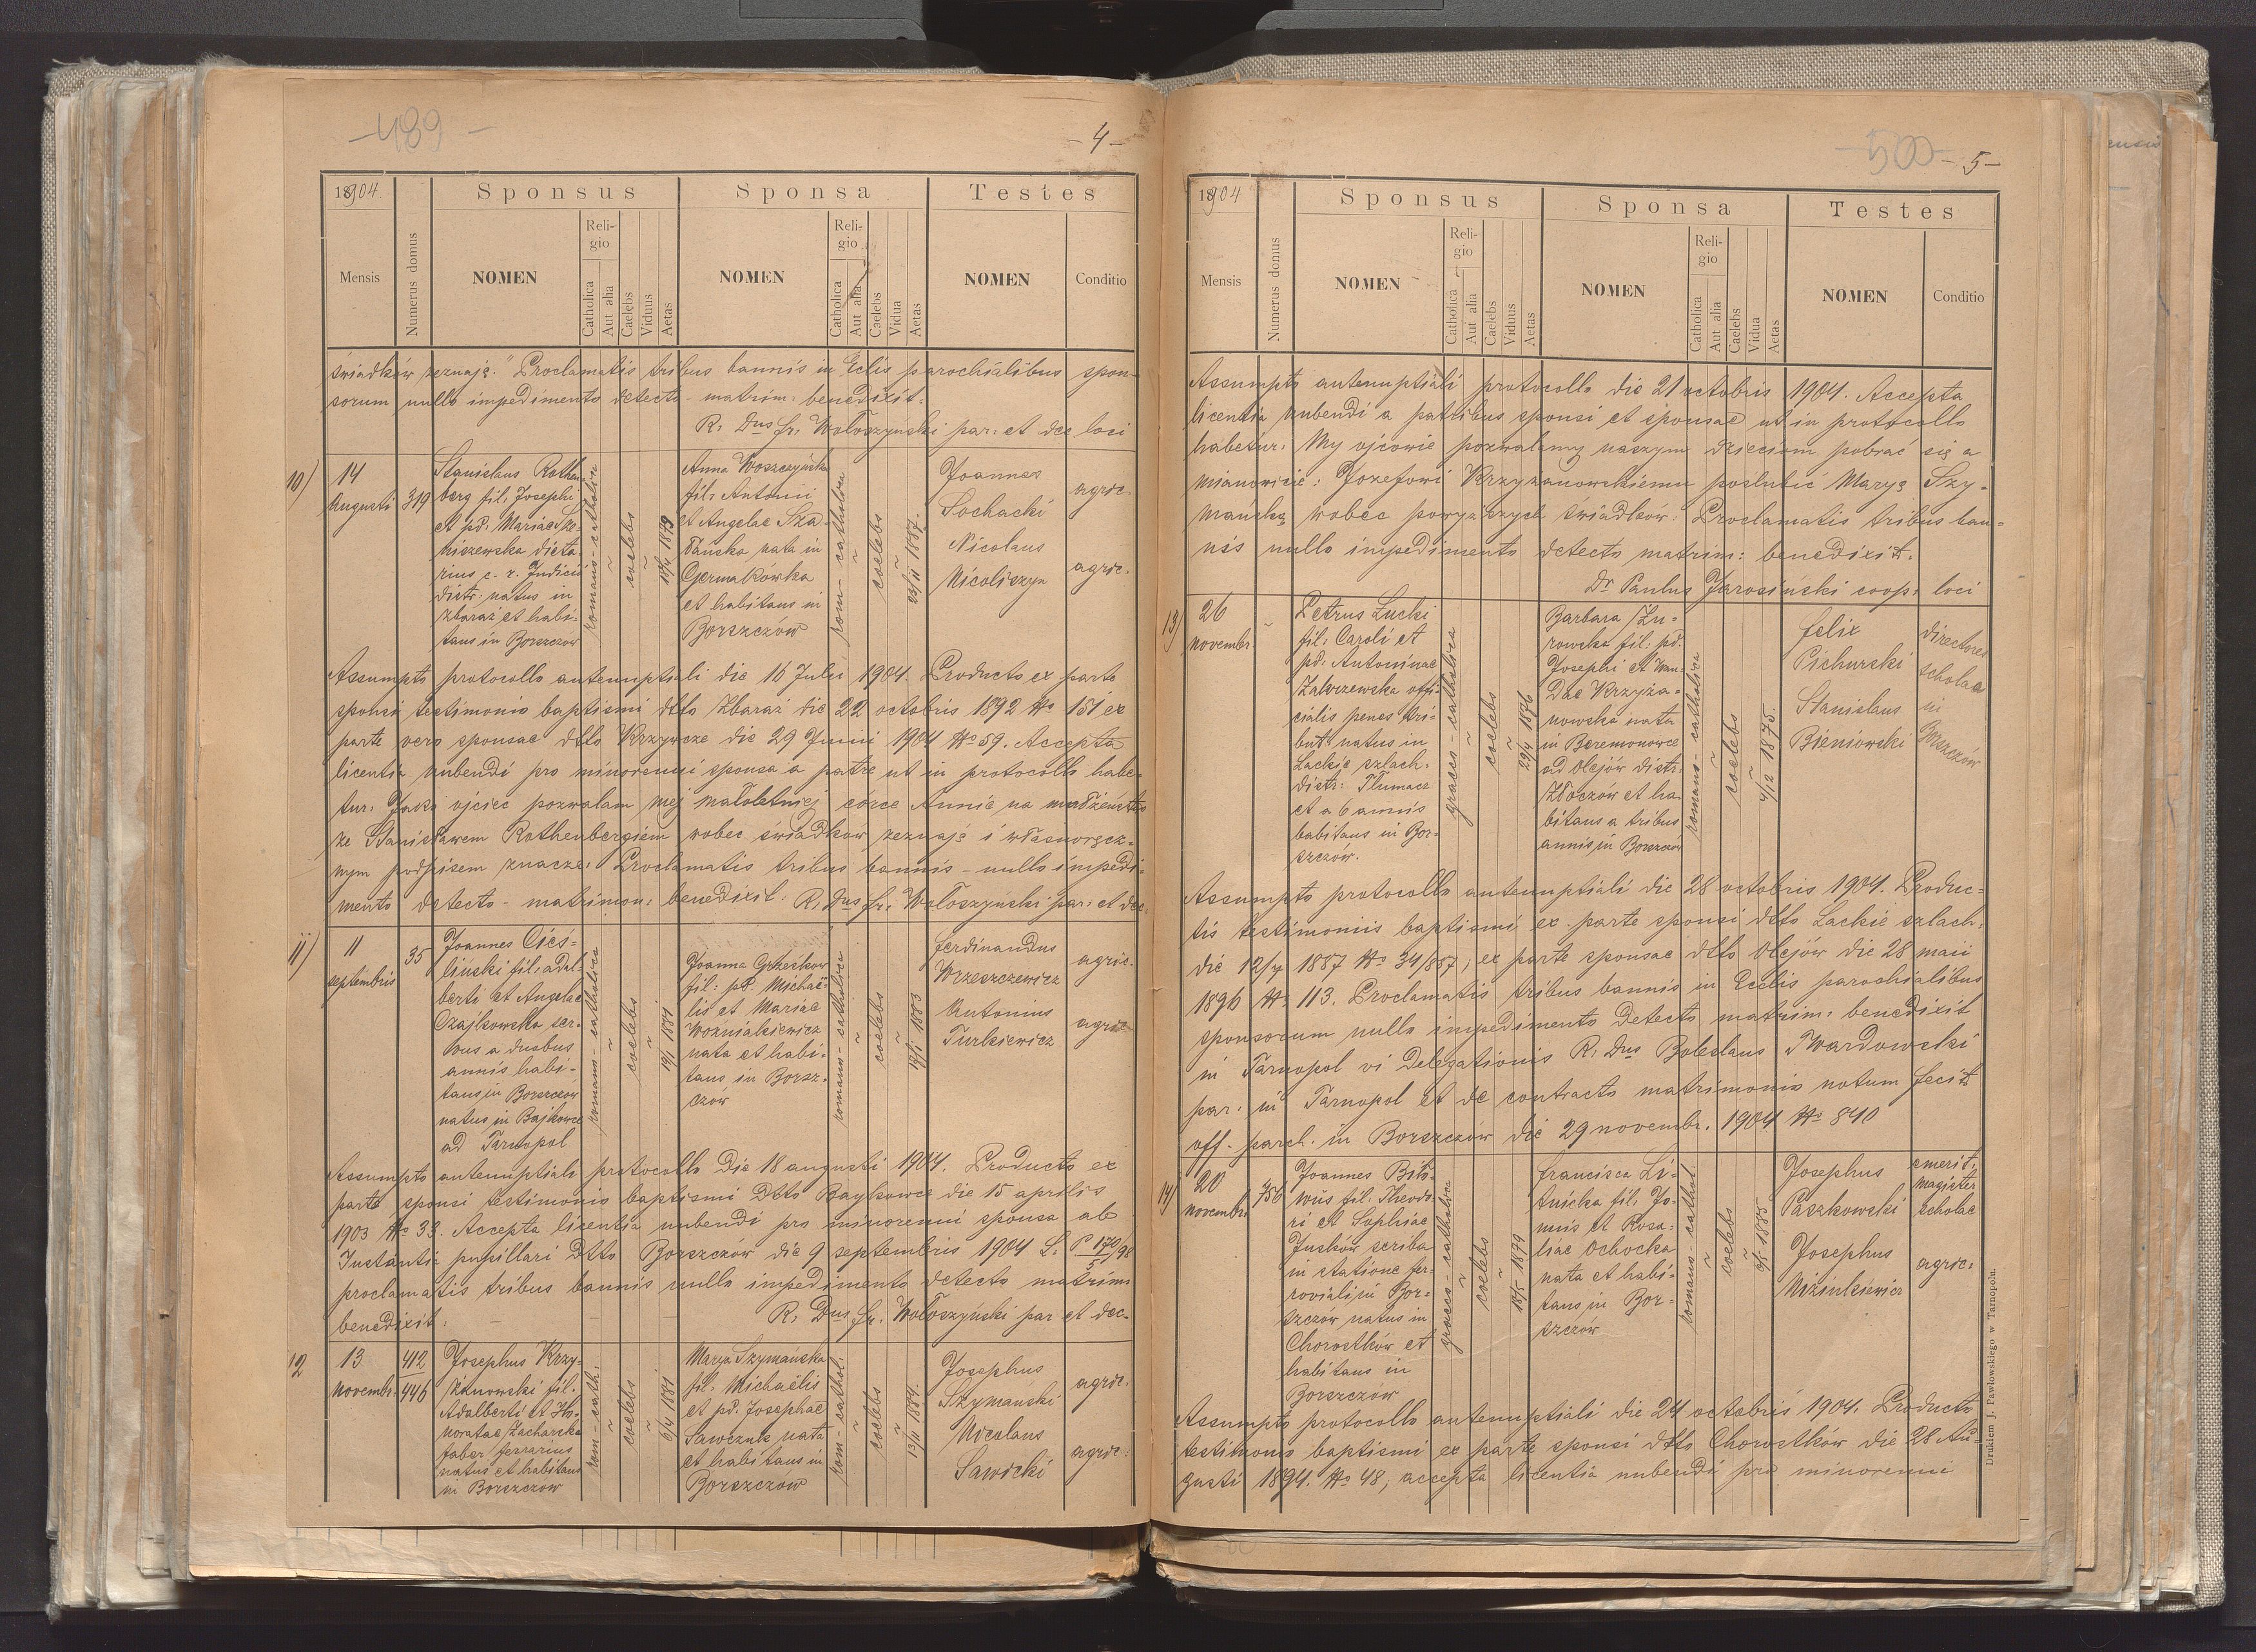 -489-
-4-
1904
Sponsus
Sponsa
Testes
Mensis
Numerus domus
NOMEN
Religio
Catholica
Aut alia
Caelebs
Viduus
Aetas
NOMEN
Religio
Catholica
Aut alia
Caelebs
Vidua
Aetas
NOMEN
Conditio
świadków zeznaję." Proclamatis tribus bannis in Eclis parochialibus spon-
sorum nullo impedimento detecto - matrim: benedixit.
R. Dus Fr. Wołoszyński par. et dec loci
10)
14
Augusti
319
Stanislaus Rothen-
berg fil. Josephi
et pd. Mariae Sko-
niszewska dieta-
rius c. r. Judicii
distr. natus in
Zbaraż et habi-
tans in Borszczów
romano-catholica
coelebs
Anna Woszczyńska
fil. Antonii
et Angelae Sza-
fańska nata in
Germakówka
et habitans in
Borszczów
rom-catholica
coelebs
23/11 1887.
Joannes
Sochacki
agric.
Nicolaus
Nicoliszyn
agric.
Assumpto protocollo antenuptiali die 16 Julii 1904. Producto ex parte
sponsi testimonio baptismi dtto Zbaraż die 22 octobris 1892 No 151 ex
parte vero sponsae dtto Krzywcze die 29 Junii 1904 No 59. Accepta
licentia nubendi pro minorenni sponsa a patre ut in protocollo habe-
tur. Jako ojciec pozwalam mej małoletniej córce Annie na małżeństwo
ze Stanisławem Rothenbergiem wobec świadków zeznaję i własnoręcz-
nym podpisem znaczę. Proclamatis tribus bannis - nullo impedi-
mento detecto - matrimon: benedixit. R. Dus Fr. Wołoszyński par. et dec.
11)
11
septembris
35
Joannes Cieś-
liński fil. Adal-
berti et Angelae
Czajkowska ser-
vus a duobus
annis habi-
tans in Borszczów
natus in Bajkowce
ad Tarnopol
romano-catholica
coelebs
19/1 1881
Joanna Grześków
fil: pd. Michae-
lis et Mariae
Woźniakiewicz
nata et habi-
tans in Borsz-
czów
romano-catholica
coelebs
Ferdinandus
Wrzeszczewicz
agric.
Antonius
Turkiewicz
agric.
Assumpto antenuptiali protocollo die 18 augusti 1904. Producto ex
parte sponsi testimonio baptismi dtto Baykowce die 15 aprilis
1903 No 33. Accepta licentia nubendi pro minorenni sponsa ab
Instantia pupillari dtto Borszczów die 9 septembris 1904 L. P 170/98
proclamatis tribus bannis nullo impedimento detecto matrim
benedixit.
R. Dus Fr. Wołoszyński par et dec.
12
13
Novembr.
412
446
Josephus Krzy-
żanowski fil.
Adalberti et Ho-
noratae Zacharska
faber ferrarius
natus et habitans
in Borszczów
rom-cath.
coelebs
6/4 1881
Marya Szymanska
fil. Michaelis
et pd. Josephae
Sawczuk nata
et habitans in
Borszczów
rom-cathol.
coelebs
13/11 1884.
Josephus
Szymanski
agric.
Nicolaus
Sawicki
agric.
-500-
-5-
1904
Sponsus
Sponsa
Testes
Mensis
Numerus domus
NOMEN
Religio
Catholica
Aut alia
Caelebs
Viduus
Aetas
NOMEN
Religio
Catholica
Aut alia
Caelebs
Vidua
Aetas
NOMEN
Conditio
Assumpto antenuptiali protocollo die 21 octobris 1904. Accepta
licentia nubendi a patribus sponsi et sponsae ut in protocollo
habetur. My ojcowie pozwalamy naszym dzieciom pobrać się a
mianowicie: Józefowi Krzyżanowskiemu poślubić Maryę Szy-
mańską wobec powyższych świadków. Proclamatis tribus ban-
nis nullo impedimento detecto matrim: benedixit.
Dr Paulus Jarosiński coop. loci
13)
26
novembr
Petrus Łucki
fil. Caroli et
pd. Antoninae
Zakrzewska offi-
cialis penes tri-
but. natus in
Lackie szlach.
distr: Tłumacz
et a 6 annis
habitans in Bor-
szczów.
graeco-catholica
coelebs
29/4 1876
Barbara Żu-
rowska fil. pd.
Josephi et Wan-
dae Krzyża-
nowska nata
in Beremowce
ad Olejów distr.
Złoczów et ha-
bitans a tribus
annis in Borszczów
romano-catholica
coelebs
4/12 1875.
Felix
Pichurski
Stanislaus
Bieniowski
directores
scholae
in
Assumpto protocollo antenuptiali die 28 octobris 1904. Produc-
tis testimoniis baptismi ex parte sponsi dtto Lackie szlach.
die 12/4 1887 No 34/887; ex parte sponsae dtto Olejów die 28 maii
1896 No 113. Proclamatis tribus bannis in Ecclis parochialibus
sponsorum nullo impedimento detecto matrim. benedixit
in Tarnopol vi Delegationis R. Dus Boleslaus Twardowski
par. in Tarnopol et de contracto matrimonio notum fecit
off. paroch. in Borszczów die 29 novembr. 1904 No 840
14)
20
novembr.
756
Joannes Bito-
wús fil. Theodo-
ri et Sophiae
Juśków scriba
in statione fer-
roviali in Bor-
szczów natus in
Chorostków et
habitans in
Borszczów
graeco-catholica
coelebs
18/5 1879
Francisca Li-
tnicka fil. Jo-
annis et Rosa-
liae Ochocka
nata et habi-
tans in Bor-
szczów
romano-cathol.
coelebs
Josephus
Paszkowski
emerit.
magister
scholae
Josephus
Mizinkiewicz
agric.
Assumpto protocollo antenuptiali die 24 octobris 1904. Producto
testimonio baptismi ex parte sponsi dtto Chorostków die 28 Au-
gusti 1894. No 48; accepta licentia nubendi pro minorenni
Drukiem J. Pawłowskiego w Tarnopolu.